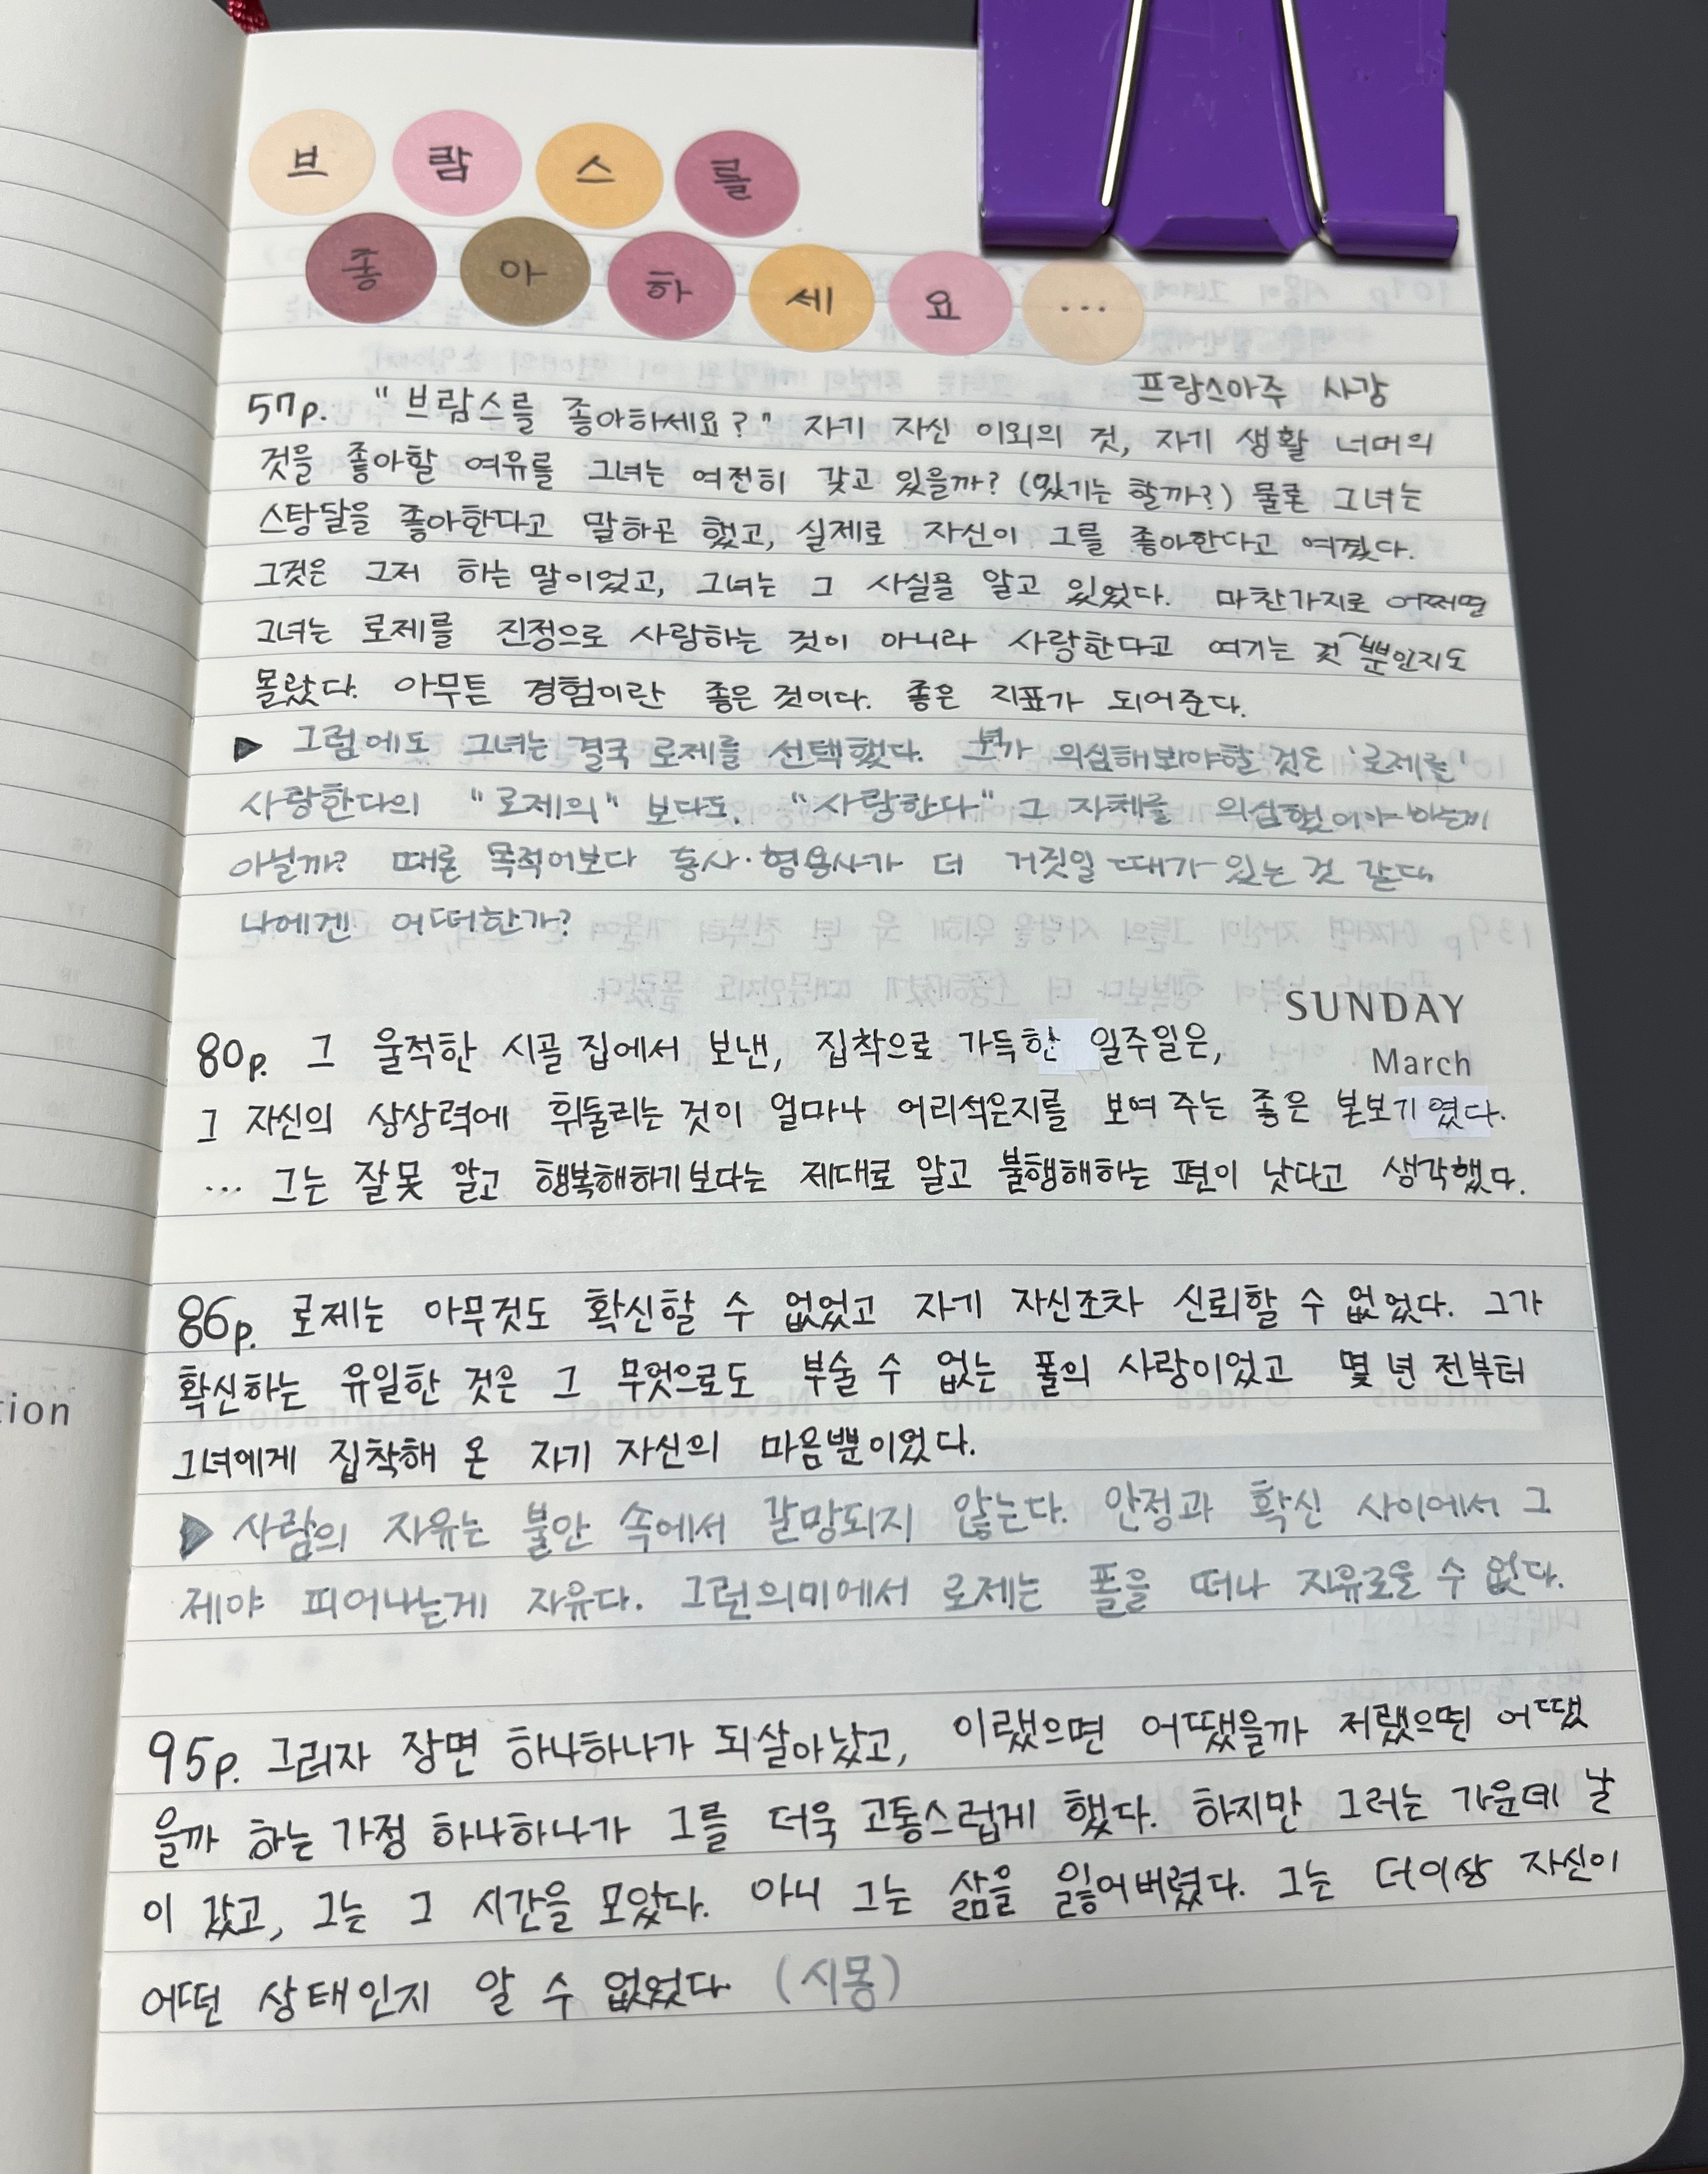 브람스를
좋아하세요...
프랑스아주 사강
57p. "브람스를 좋아하세요?" 자기 자신 이외의 것, 자기 생활 너머의
것을 좋아할 여유를 그녀는 여전히 갖고 있을까? (있기는 할까?) 물론 그녀는
스탕달을 좋아한다고 말하곤 했고, 실제로 자신이 그를 좋아한다고 여겼다.
그것은 그저 하는 말이었고, 그녀는 그 사실을 알고 있었다. 마찬가지로 어쩌면
그녀는 로제를 진정으로 사랑하는 것이 아니라 사랑한다고 여기는 것 뿐인지도
몰랐다. 아무튼 경험이란 좋은 것이다. 좋은 지표가 되어준다.
▶ 그럼에도 그녀는 결국 로제를 선택했다. 의심해봐야할 것은 '로제를'
사랑한다의 "로제의" 보다도, "사랑한다" 그 자체를 의심했어야 하는게
아닐까? 때론 목적어보다 동사·형용사가 더 거짓일 때가 있는 것 같다
나에겐 어떠한가?
SUNDAY
March
80p. 그 울적한 시골 집에서 보낸, 집착으로 가득한 일주일은,
그 자신의 상상력에 휘둘리는 것이 얼마나 어리석은지를 보여 주는 좋은 본보기였다.
... 그는 잘못 알고 행복해하기보다는 제대로 알고 불행해하는 편이 낫다고 생각했다.
86p. 로제는 아무것도 확신할 수 없었고 자기 자신조차 신뢰할 수 없었다. 그가
확신하는 유일한 것은 그 무엇으로도 부술 수 없는 폴의 사랑이었고 몇 년 전부터
그녀에게 집착해 온 자기 자신의 마음뿐이었다.
tion
▶ 사람의 자유는 불안 속에서 갈망되지 않는다. 안정과 확신 사이에서 그
제야 피어나는게 자유다. 그런의미에서 로제는 폴을 떠나 자유로울 수 없다.
95p. 그러자 장면 하나하나가 되살아났고, 이랬으면 어땠을까 저랬으면 어땠
을까 하는 가정 하나하나가 그를 더욱 고통스럽게 했다. 하지만 그러는 가운데 날
이 갔고, 그는 그 시간을 모았다. 아니 그는 삶을 잃어버렸다. 그는 더이상 자신이
어떤 상태인지 알 수 없었다 (시몽)